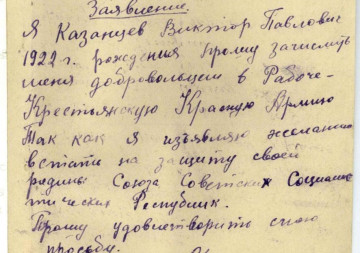 Заявление
Я Казанцев Виктор Павлович
1922 г. рождения прошу зачислить
меня добровольцем в Рабоче-
Крестьянскую Красную Армию
Так как я изъявляю желание
встать на защиту своей
родины Союза Советских Социалис
тических Республик.
Прошу удовлетворить мою
просьбу.